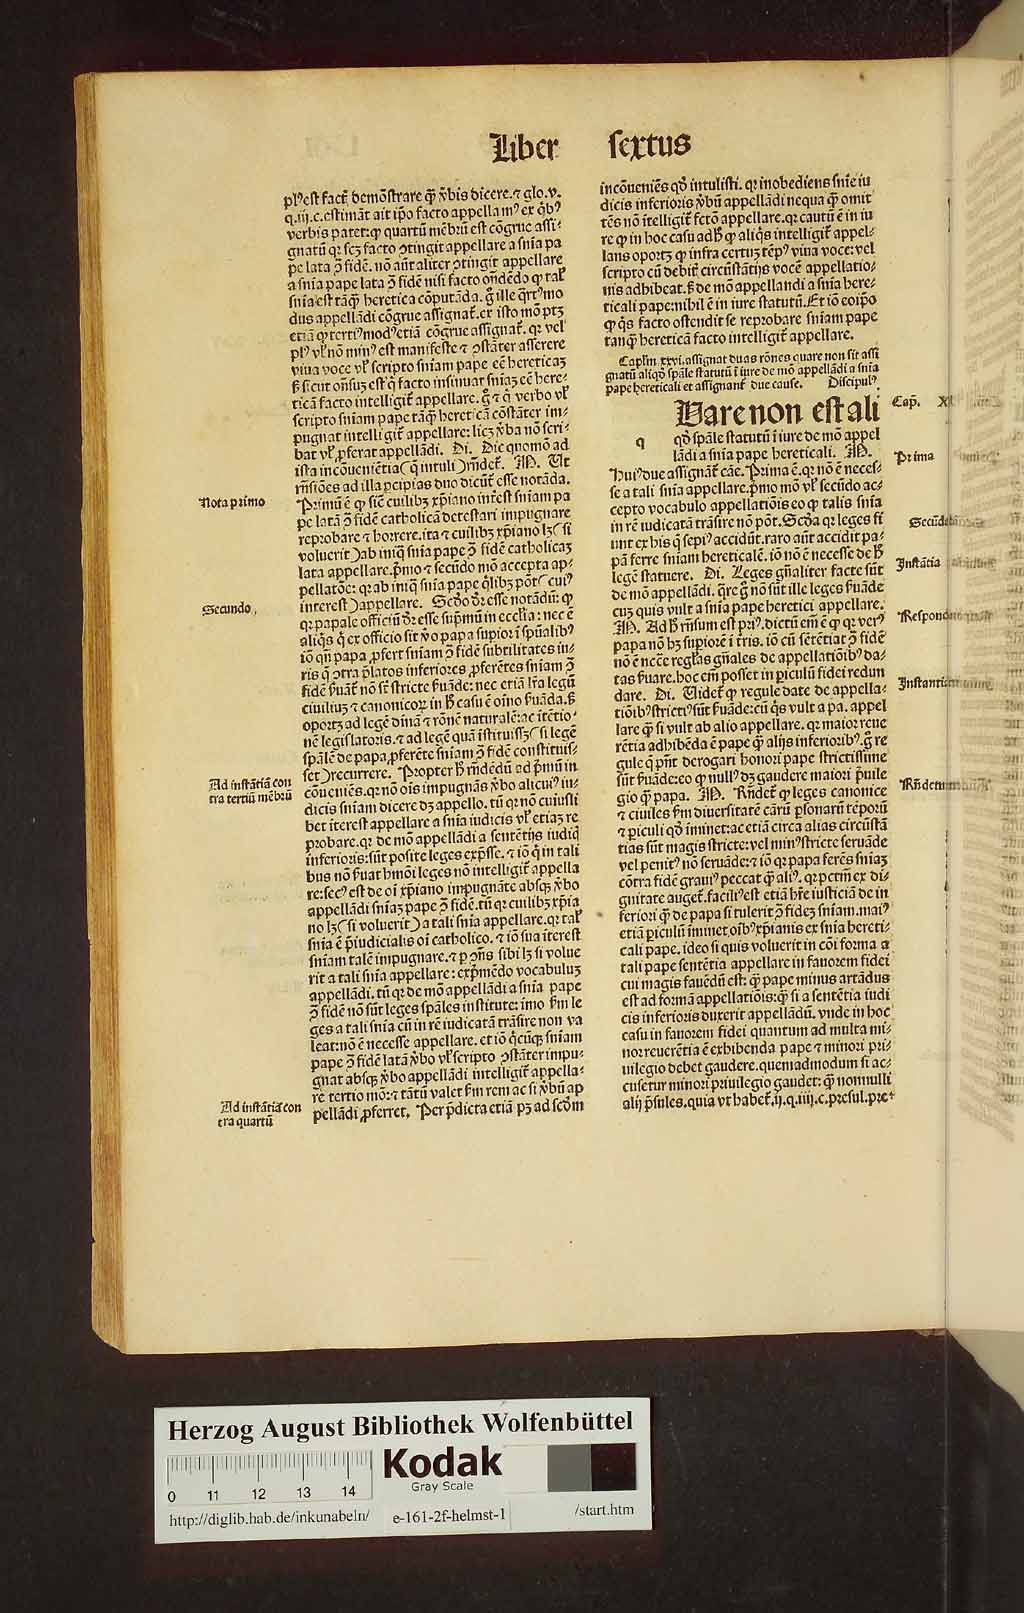 Liber sextus
plꝰ est factꝫ demōstrare ꝙ v̄bis dicere. ⁊ glo. v.
q. iij. c. estimāt ait ip̄o facto appellamꝰ ex q̇bꝰ
verbis patet: ꝙ quartū mēbrū est cōgrue assi-
gnatū qꝛ scꝫ facto ꝯtingit appellare a snīa pa
pe lata ꝯ̄ fidē. nō aūt aliter ꝯtingit appellare
a snīa pape lata ꝯ̄ fidē nisi facto on̄dēdo ꝙ tal̄
snīa est tāꝙ̄ heretica cōputāda. g̊ ille q̄rtꝰ mo
dus appellādi cōgrue assignat̄. et isto mō ptꝫ
etiā ꝙ tertiꝰ modꝰ etiā cōgrue assignat̄. qꝛ vel
plꝰ vl̄ nō minꝰ est manifeste ⁊ ꝯstāter asserere
viua voce vl̄ scripto snīam pape eē hereticaꝫ
sꝫ sicut on̄suꝫ est q̇ facto insinuat snīaꝫ eē here-
ticā facto intelligit̄ appellare. g̊ ⁊ q̇ verbo vl̄
scripto snīam pape tāꝙ̄ hereticā cōstāter im-
pugnat intelligit̄ appellare: licꝫ v̄ba nō scri-
bat vl̄ ꝓferat appellādi. Di. Dic quomō ad
ista incōueniētia (q̄ intuli) rn̄det̄. M. Ut
rn̄siōes ad illa ꝑcipias duo dicūt̄ esse notāda.
Nota primo
Primū ē ꝙ sic̄ cuilibꝫ xp̄iano int̄est snīam pa
pe latā ꝯ̄ fidē catholicā detestari impugnare
reprobare ⁊ horrere. ita ⁊ cuilibꝫ xp̄iano lꝫ (si
voluerit) ab iniq̄ snīa pape ꝯ̄ fidē catholicaꝫ
lata appellare. p̄mo ⁊ secūdo mō accepta ap-
pellatōe: qꝛ ab iniq̄ snīa pape q̇libꝫ pōt (cuiꝰ
Secundo
interest) appellare. Scd̄o dr̄ esse notādū: ꝙ
qꝛ papale officiū dr̄ esse sup̄mū in eccl̄ia: nec ē
aliq̇s q̇ ex officio sit v̄o papa supior ī spūalibꝰ
iō qn̄ papa ꝓfert snīam ꝯ̄ fidē subtilitates iu-
ris q̄ ꝯtra p̄latos inferiores ꝓferētes snīam ꝯ̄
fidē ẜuāt̄ nō sīt stricte ẜuāde: nec etiā lr̄a legū
ciuiliuꝫ ⁊ canonicoꝝ in h̄ casu ē oīno ẜuāda. sꝫ
oportꝫ ad legē diuinā ⁊ rōnē naturalē: ac itētio-
nē legislatoris. ⁊ ad legē quā istituissꝫ (si legē
spālē de papa ꝓferēte snīam ꝯ̄ fidē constituis-
set) recurrere.
Ad instātiā con
tra tertiū mēbrū
Propter h̄ rn̄dēdū ad p̄mū in
cōueniēs. qꝛ nō oīs impugnās v̄bo alicuiꝰ iu-
dicis snīam dicere dꝫ appello. tū qꝛ nō cuiusli
bet iterest appellare a snīa iudicis vl̄ etiaꝫ re
probare. qꝛ de mō appellādi a sentētijs iudicū̄
inferioris: sūt posite leges exp̄sse. ⁊ iō q̇ in tali
bus nō ẜuat hmōi leges nō intelligit̄ appella
re: secꝰ est de oī xp̄iano impugnāte absqꝫ v̄bo
appellādi snīaꝫ pape ꝯ̄ fidē. tū qꝛ cuilibꝫ xp̄ia
no lꝫ (si voluerit) a tali snīa appellare. qꝛ tal̄
snīa ē p̄iudicialis oī catholico. ⁊ iō sua iterest
snīam talē impugnare. ⁊ ꝑ ꝯn̄s sibi lꝫ si volue
rit a tali snīa appellare: exp̄mēdo vocabuluꝫ
appellādi. tū qꝛ de mō appellādi a snīa pape
ꝯ̄ fidē nō sūt leges spāles institute: imo ẜm le
ges a tali snīa cū in rē iudicatā trāsire non va
leat: nō ē necesse appellare. et iō q̇cūqꝫ snīam
pape ꝯ̄ fidē latā v̄bo vl̄ scripto ꝯstāter impu-
gnat absqꝫ v̄bo appellādi intelligit̄ appella-
re tertio mō: ⁊ tātū valet ẜm rem ac si v̄bū ap
Ad instātiā con
tra quartū
pellādi ꝓferret. Per p̄dicta etiā pꝫ ad scd̄m
incōueniēs qd̄ intulisti. qꝛ inobediens snīe iu
dicis inferioris v̄bū appellādi nequaꝙ̄ omit
tēs nō ītelligit̄ fctō appellare. qꝛ cautū ē in iu
re ꝙ in hoc casu adh̄ ꝙ aliq̇s intelligit̄ appel-
lans oportꝫ ꝙ infra certuꝫ tēpꝰ viua voce: vel
scripto cū debit̄ circūstātijs vocē appellatio-
nis adhibeat. sꝫ de mō appellandi a snīa here-
ticali pape: nihil ē in iure statutū. Et iō eoip̄o
ꝙ q̇s facto ostendit se reprobare snīam pape
tanꝙ̄ hereticā facto intelligit̄ appellare.
Capl̄m. xxvi. assignat duas rōnes quare non sit assi
gnatū aliqd̄ spāle statutū ī iure de mō appellādi a snīa
pape hereticali et assignant̄ due cause. Discipulꝰ
Cap̄.
q Uare non est ali
qd̄ spāle statutū ī iure de mō appel
lādi a snīa pape hereticali. M.
Prima
Huiꝰ due assignāt̄ cāe. Prima ē. qꝛ nō ē neces-
se a tali snīa appellare. p̄mo mō vl̄ secūdo ac-
cepto vocabulo appellatiōis eo ꝙ talis snīa
in rē iudicatā trāsire nō pōt. Scd̄a qꝛ leges fi
unt ex his q̄ sepiꝰ accidūt. raro aūt accidit pa-
pā ferre snīam hereticalē. iō nō ē necesse de h̄
Instātia
legē statuere. Di. Leges gn̄aliter facte sūt
de mō appellādi. q̄re g̊ nō sūt ille leges ẜuāde
cuꝫ quis vult a snīa pape heretici appellare.
Respond
M. Ad h̄ rn̄sum est priꝰ. dictū em̄ ē ꝙ qꝛ verꝰ
papa nō hꝫ supiorē ī tr̄is. iō cū sētētiat ꝯ̄ fidē
nō ē nccē̄ regl̄as gn̄ales de appellatiōibꝰ da-
tas ẜuare. hoc em̄ posset in ꝑiculū fidei redun
Instantia
dare. Di. Uidet̄ ꝙ regule date de appella-
tiōibꝰ strictiꝰ sūt ẜuāde: cū q̇s vult a pa. appel
lare ꝙ̄ si vult ab alio appellare. qꝛ maior reue
rētia adhibēda ē pape ꝙ̄ alijs inferioribꝰ. g̊ re
gule q̄ pn̄t derogari honori pape strictissime
sūt ẜuāde: eo ꝙ nullꝰ dꝫ gaudere maiori p̄uile
Rn̄det
gio ꝙ̄ papa. M. Rn̄det̄ ꝙ leges canonice
⁊ ciuiles ẜm diuersitatē cārū ꝑsonarū tēporū
⁊ ꝑiculi qd̄ iminet: ac etiā circa alias circūstā
tias sūt magis stricte: vel minꝰ stricte seruāde
vel penitꝰ nō seruāde: ⁊ iō qꝛ papa ferēs snīaꝫ
cōtra fidē grauiꝰ peccat ꝙ̄ aliꝰ. qꝛ pctm̄ ex di-
gnitate auget̄. faciliꝰ est etiā hr̄e iusticiā de in
feriori ꝙ̄ de papa si tulerit ꝯ̄ fideꝫ snīam. maiꝰ
etiā ꝑiculū iminet oībꝰ xp̄ianis ex snīa hereti-
cali pape. ideo si quis voluerit in cōi forma a
tali pape sentētia appellare in fauorem fidei
cui magis fauēdū est: ꝙ̄ pape minus artādus
est ad formā appellatiōis: ꝙ̄ si a sentētia iudi
cis inferioris duxerit appellādū. vnde in hoc
casu in fauorem fidei quantum ad multa mi-
nor reuerētia ē exhibenda pape ⁊ minori pri-
uilegio debet gaudere. quemadmodum si ac-
cusetur minori priuilegio gaudet: ꝙ̄ nonnulli
alij p̄sules. quia vt habet̄. ij. q. iiij. c. presul. pre-
Herzog August Bibliothek Wolfenbüttel
Kodak
Gray Scale
0 11 12 13 14
http://diglib.hab.de/inkunabeln/ e-161-2f-helmst-1 /start.htm